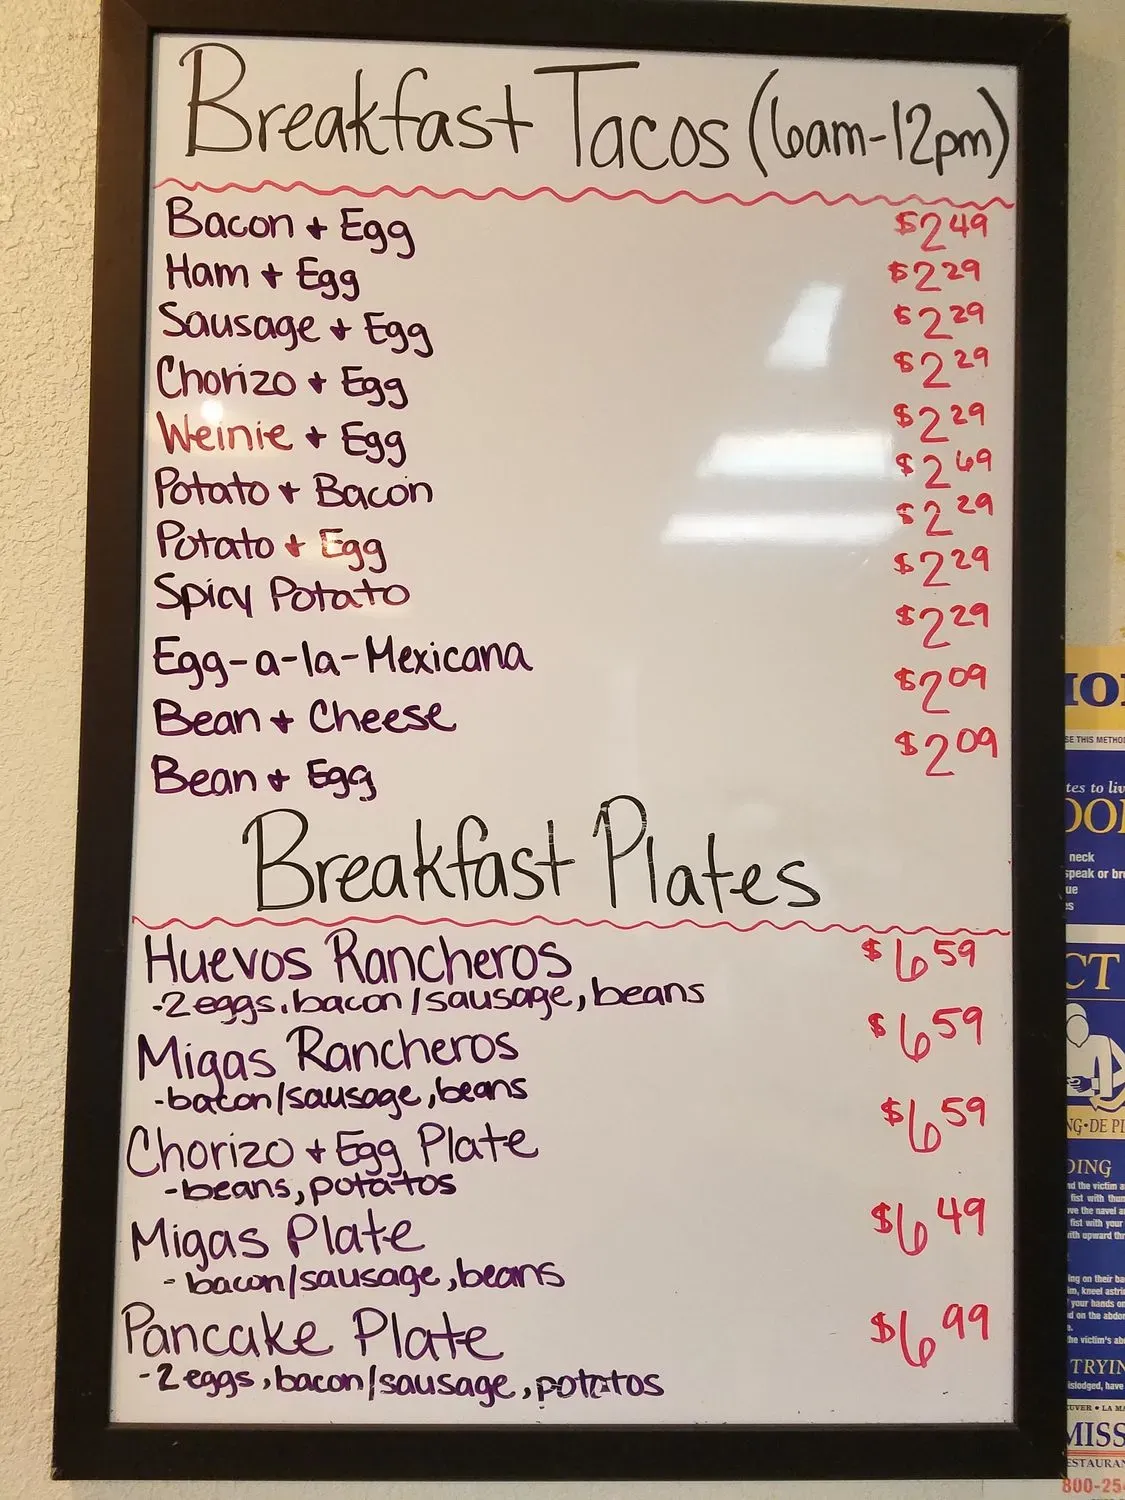 Breakfast Tacos (6am-12pm)
Bacon + Egg $2.49
Ham + Egg $2.29
Sausage + Egg $2.29
Chorizo + Egg $2.29
Weinie + Egg $2.29
Potato + Bacon $2.69
Potato + Egg $2.29
Spicy Potato $2.29
Egg-a-la-Mexicana $2.29
Bean + Cheese $2.09
Bean + Egg $2.09
Breakfast Plates
Huevos Rancheros $6.59
-2 eggs, bacon/sausage, beans
Migas Rancheros $6.59
-bacon/sausage, beans
Chorizo + Egg Plate $6.59
-beans, potatos
Migas Plate $6.49
-bacon/sausage, beans
Pancake Plate $6.99
-2 eggs, bacon/sausage, potatos
SE THIS METHO
tes to liv
neck
speak or br
ue
es
CT
NG•DE PI
DING
nd the victim a
fist with thum
ove the navel a
fist with your
ith upward thr
ing on their ba
im, kneel astri
your hands on
d on the abdo
he victim's ab
TRYIN
islodged, have
UVER • LA MA
MISS
ESTAURAN
800-25